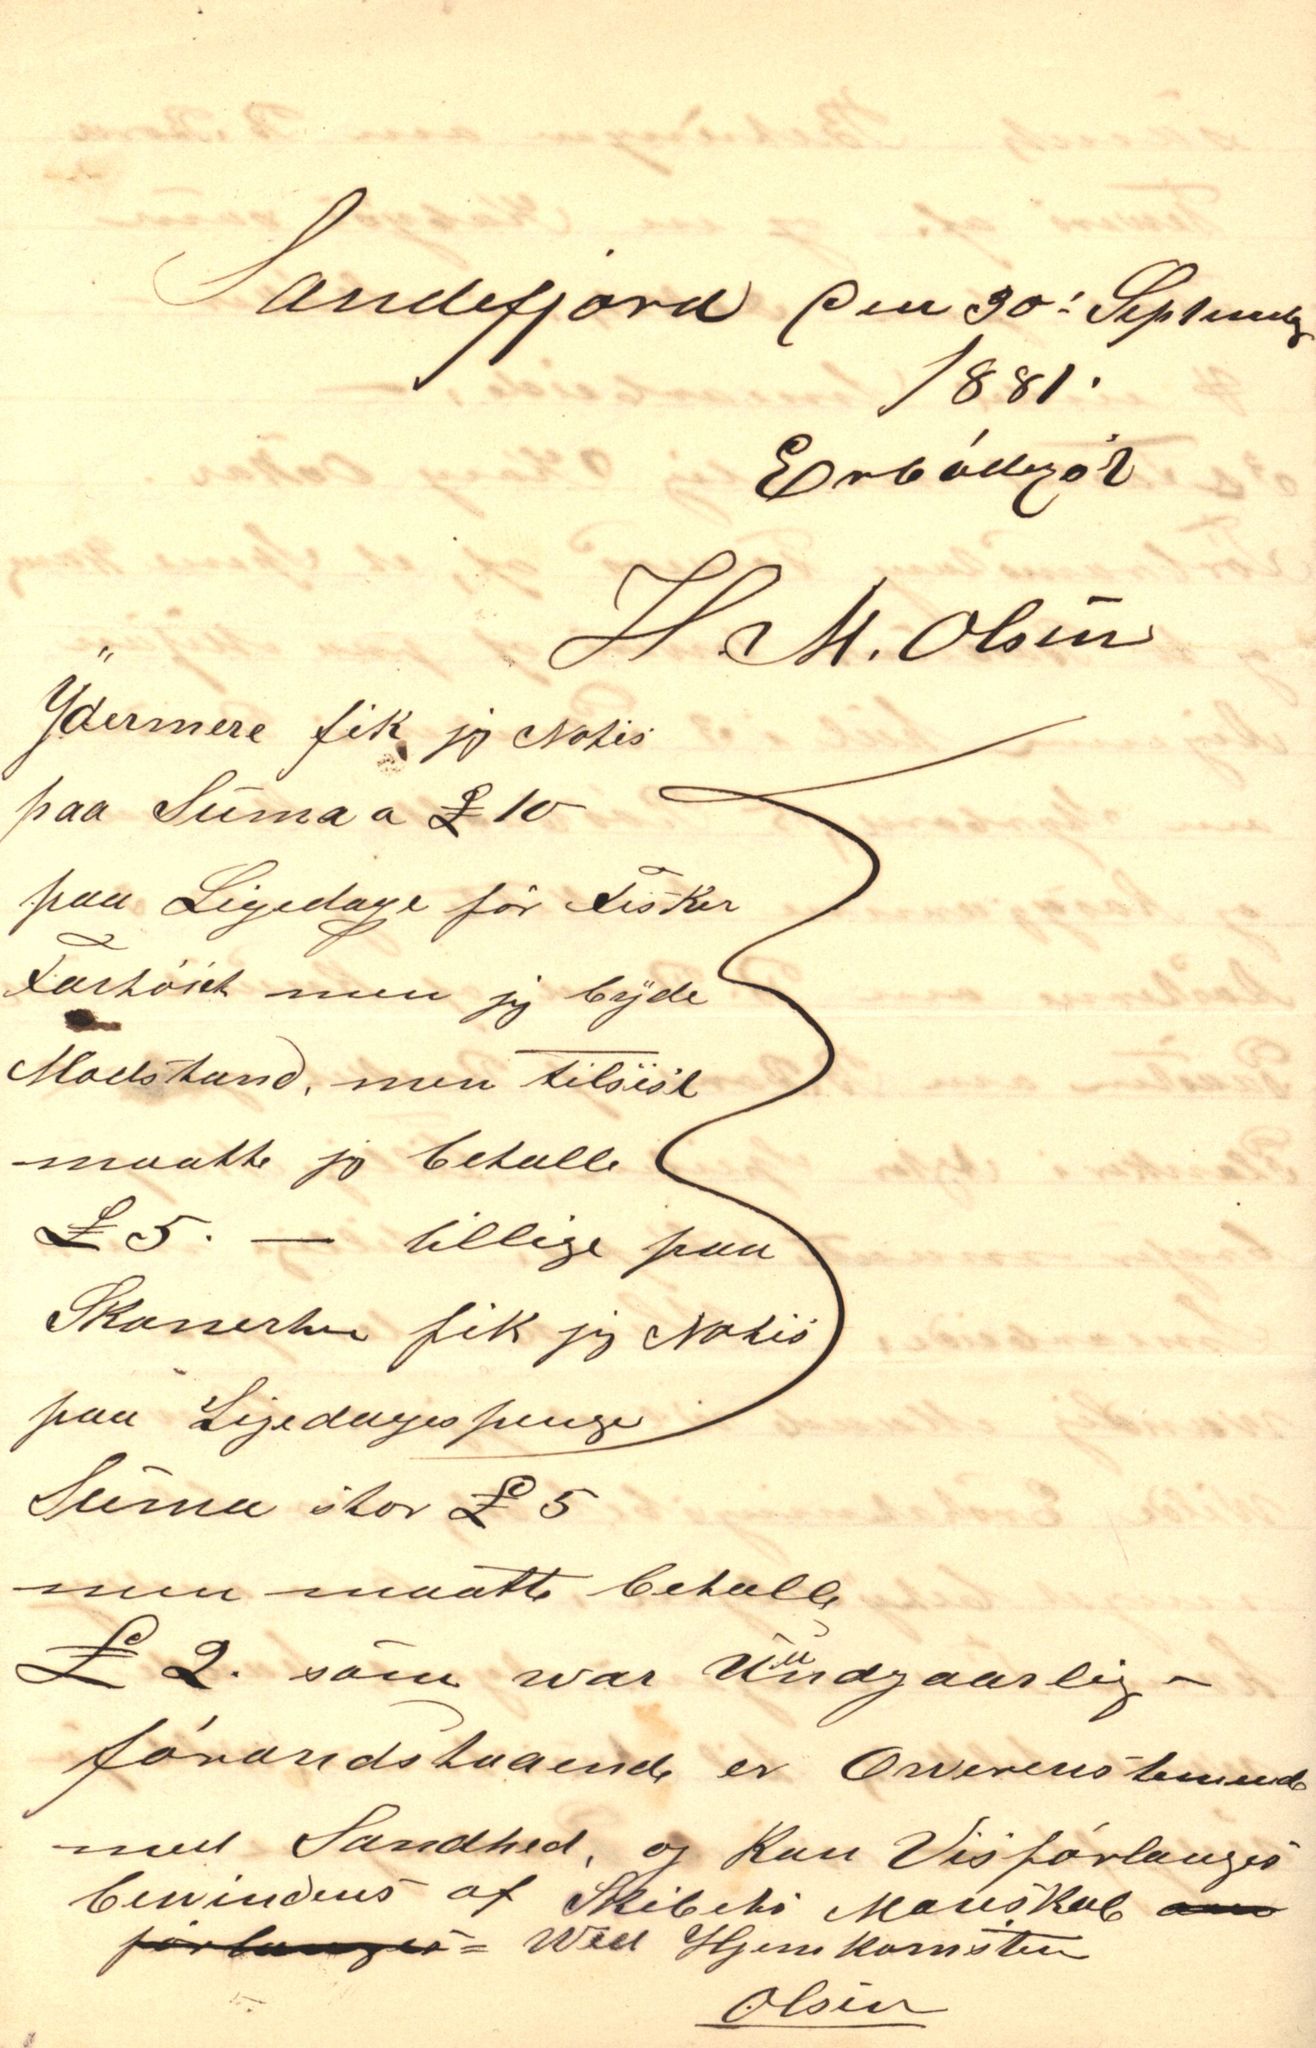 Sandefjord den 30: Septemb
1881.
Erbödigst
H. M. Olsen
Ydermere fik jeg Notis
paa Suma a £ 10
paa Ligedage för Fisker
Fartöiet men jeg byde
Modstand, men tilsist
maatte jeg betalle
£ 5. — tillige paa
Skonerten fik jeg Notis
paa Ligedagespenge
Suma stor £ 5
men maatte betalle
£ 2. som war Uundgaarlig –
förandstaaende er Owerenstemende
med Sandhed, og kan Vis förlanges
bewindens af Skibets Manskab
förlanges = Wed Hjemkomsten
Olsen